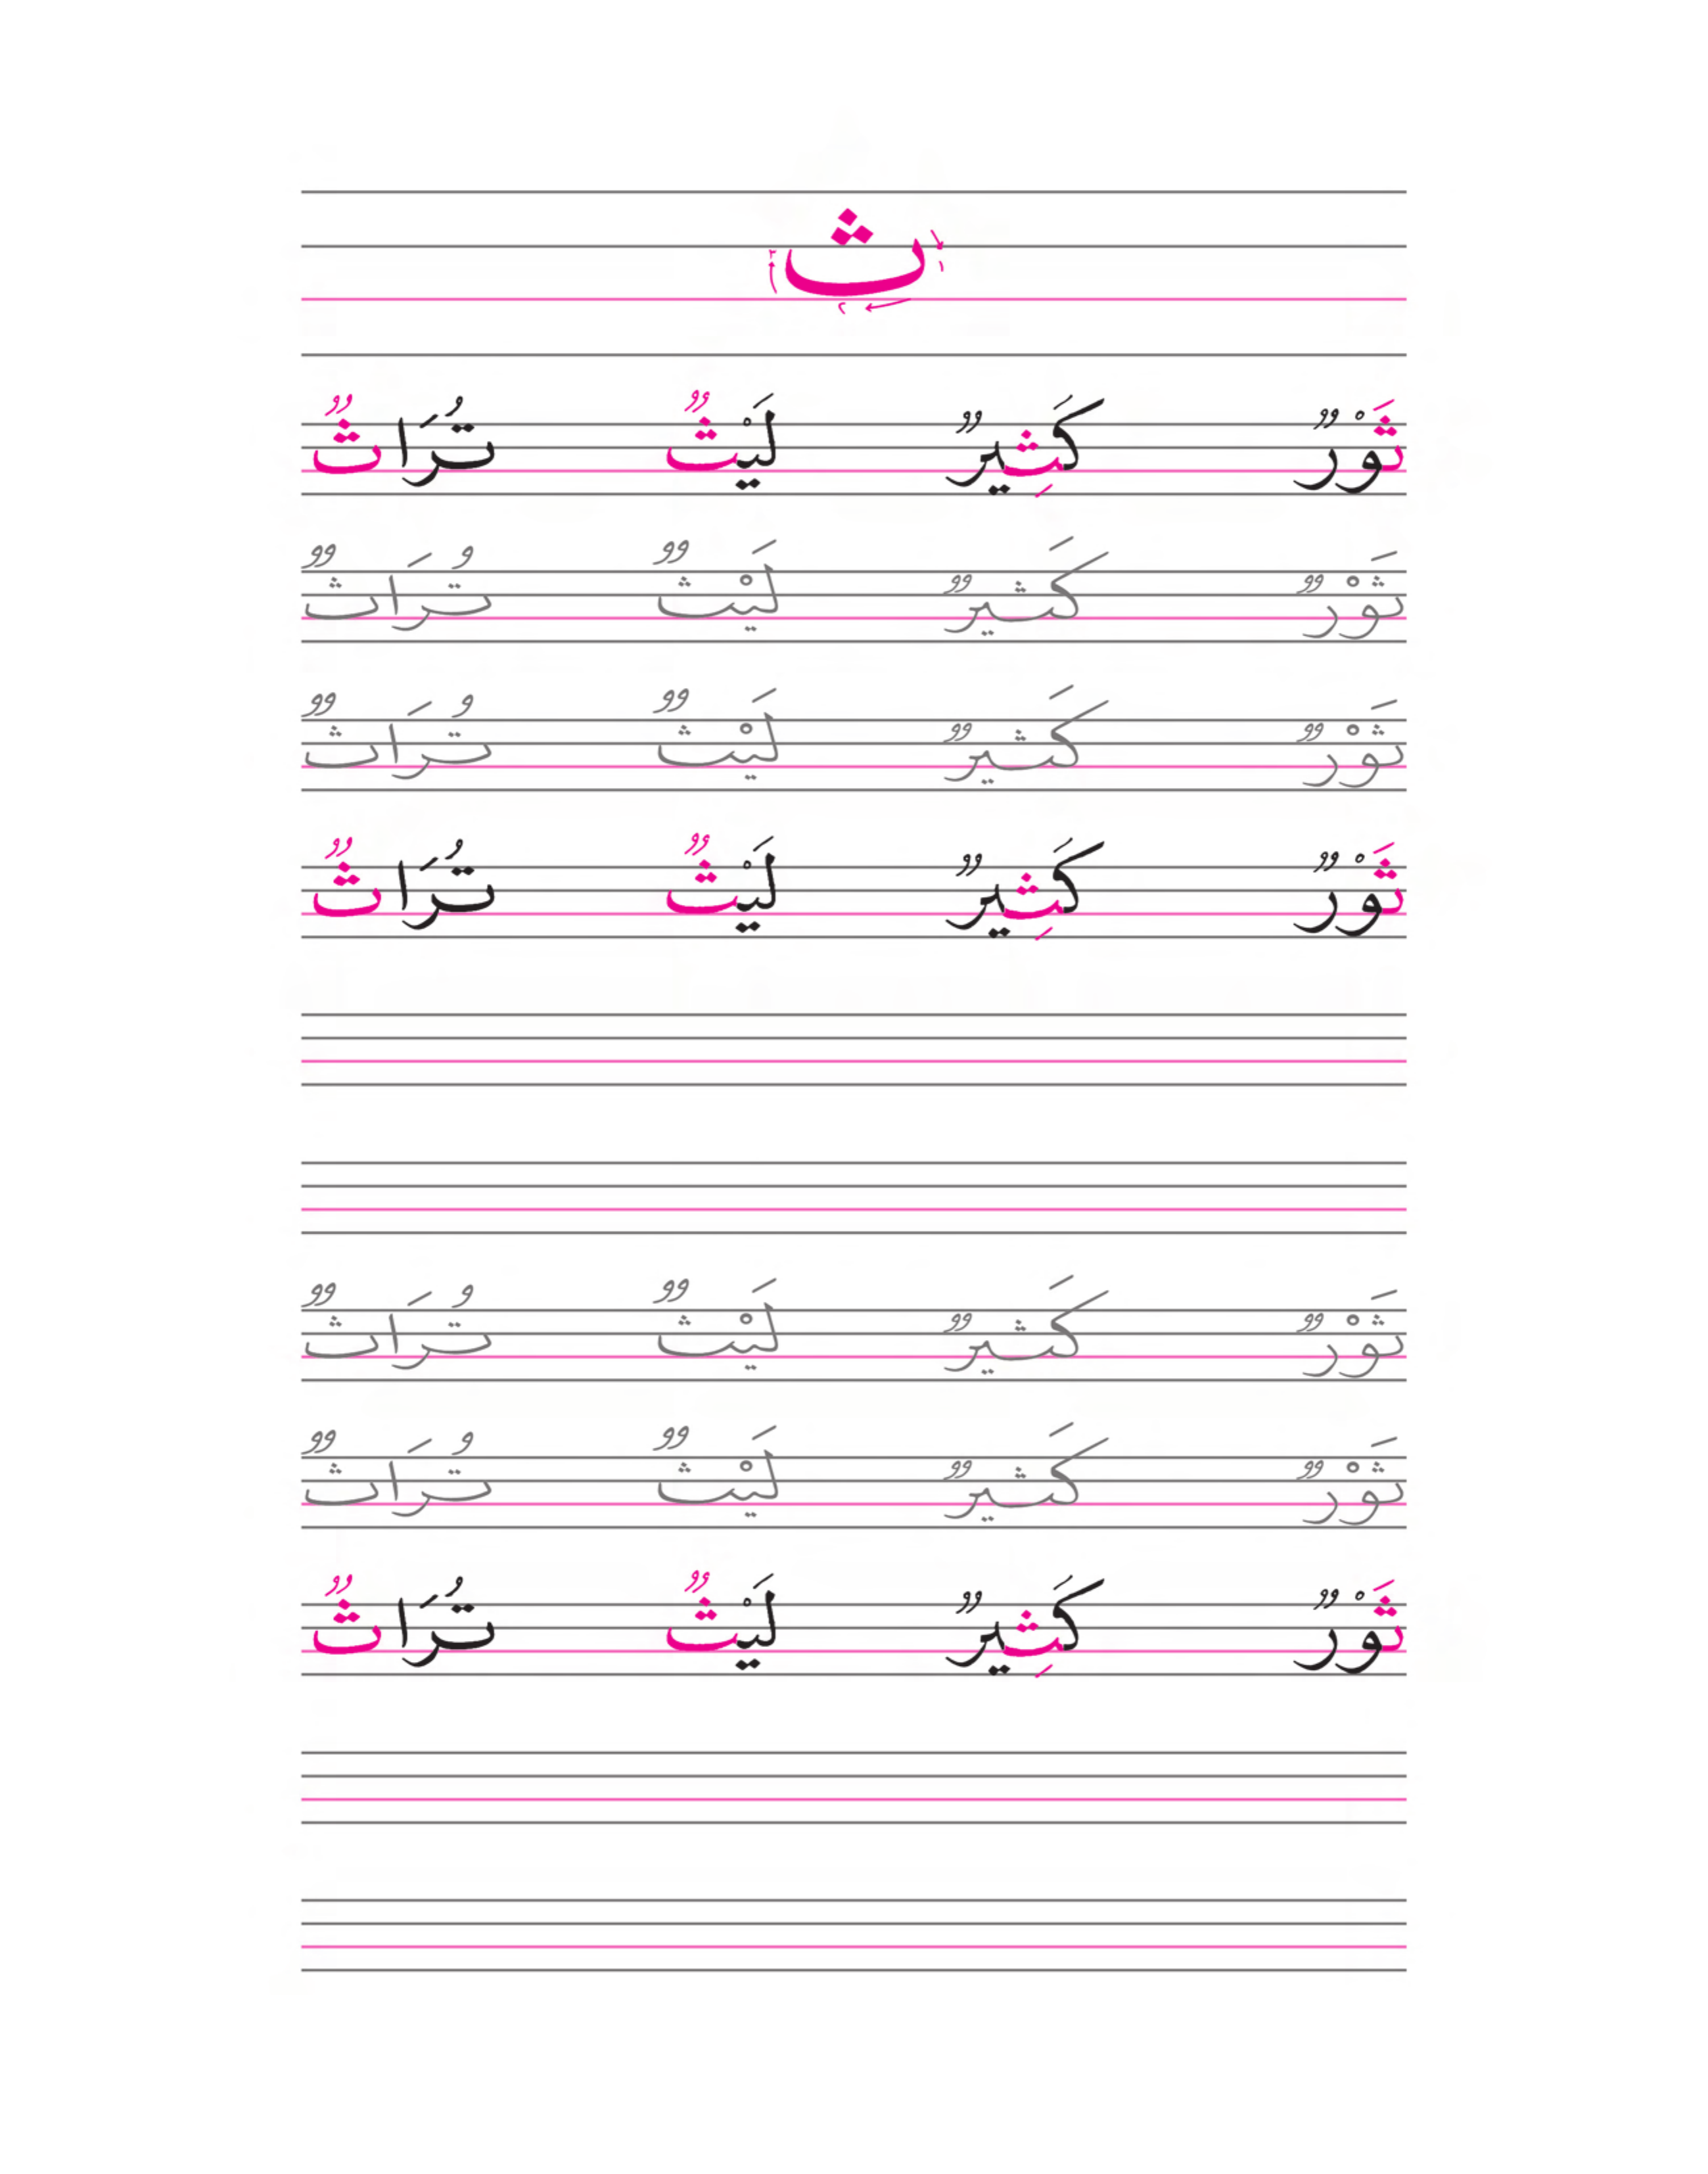 ث
ثَوْرٌ كَثِيرٌ لَيْثٌ تُرَاثٌ
ثَوْرٌ كَثيرٌ لَيْثٌ تُرَاثٌ
ثَوْرٌ كَثيرٌ لَيْثٌ تُرَاثٌ
ثَوْرٌ كَثِيرٌ لَيْثٌ تُرَاثٌ
ثَوْرٌ كَثيرٌ لَيْثٌ تُرَاثٌ
ثَوْرٌ كَثيرٌ لَيْثٌ تُرَاثٌ
ثَوْرٌ كَثِيرٌ لَيْثٌ تُرَاثٌ